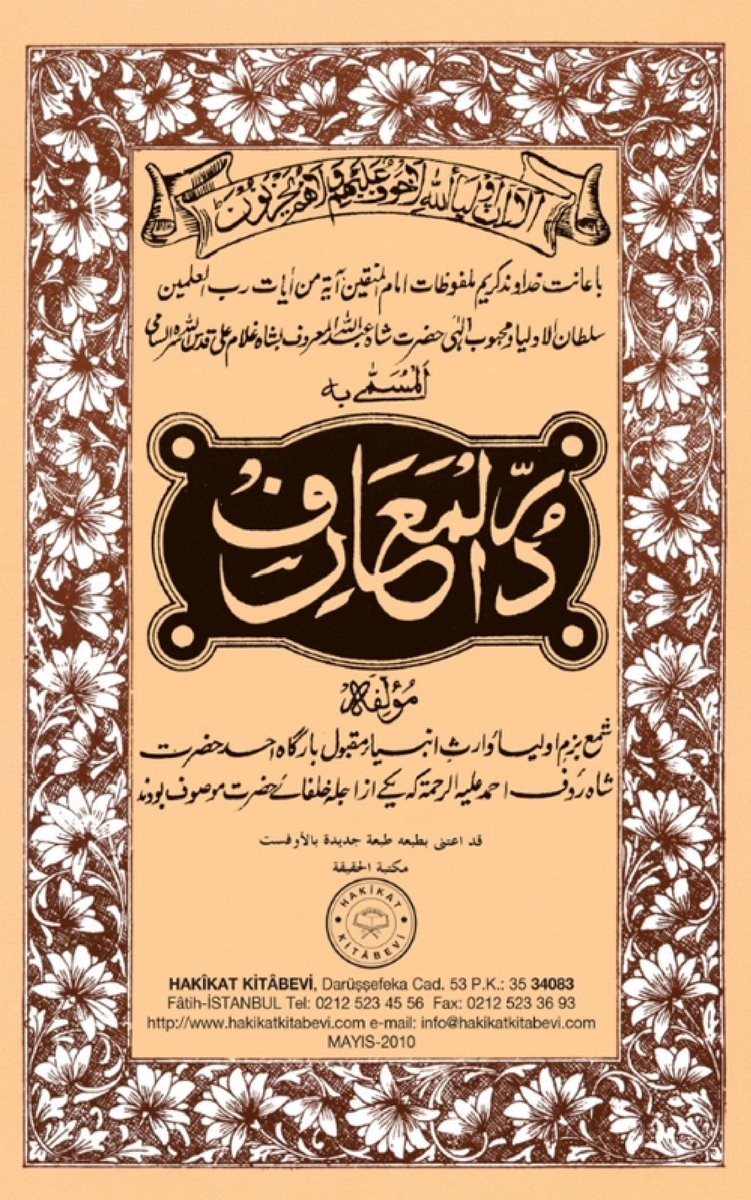 الا ان اولياء الله لا خوف عليهم ولا هم يحزنون
باعانت خداوند کریم ملفوظات امام المتقین آیة من أیات رب العلمین
سلطان الاولیا و محبوب الهی حضرت شاه عبد الله المعروف بشاه غلام علی قدس الله سره السامی
المُسَمّٰی به
دُرّ المَعارِف
مؤلفه
شمع بزم اولیاء وارثِ انبیاء مقبول بارگاه احد حضرت
شاه رؤف احمد علیه الرحمة که یکے از اجله خلفائے حضرت موصوف بودند
قد اعتنى بطبعه طبعة جديدة بالأوفست
مكتبة الحقيقة
HAKİKAT
KİTÂBEVİ
HAKÎKAT KİTÂBEVİ, Darüşşefeka Cad. 53 P.K.: 35 34083
Fâtih-İSTANBUL Tel: 0212 523 45 56 Fax: 0212 523 36 93
http://www.hakikatkitabevi.com e-mail: info@hakikatkitabevi.com
MAYIS-2010